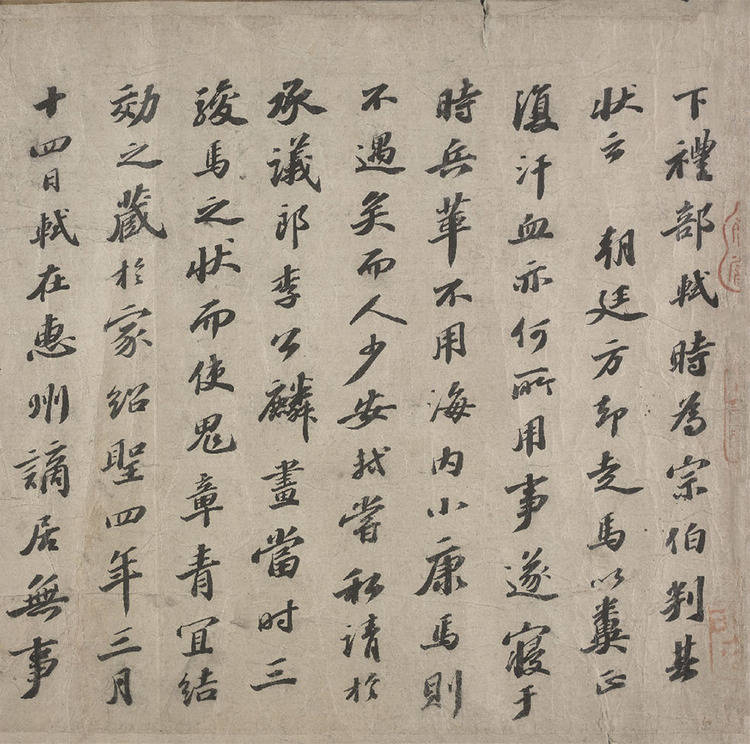 下禮部軾時為宗伯判其
狀云 朝廷方却走馬以糞正
復汗血亦何所用事遂寢于
時兵革不用海內小康馬則
不遇矣而人少安軾嘗私請於
承議郎李公麟畫當时三
駿馬之狀而使鬼章青宜結
効之藏於家紹聖四年三月
十四日軾在惠州謫居無事